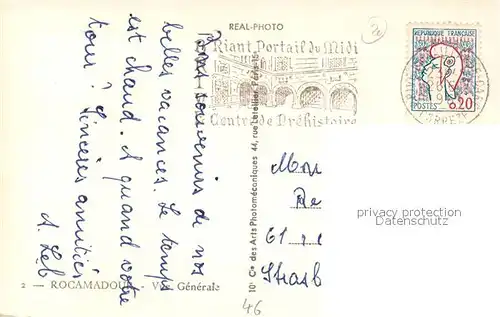 REAL-PHOTO
Riant Portail du Midi
Centre de Préhistoire
REPUBLIQUE FRANÇAISE
POSTES 0,20
CORREZE
Bons souvenirs de nos
belles vacances. Le temps
est chaud. A quand votre
tour? Sincères amitiés
A. Leb
10 Cie des Arts Photomécaniques 44, rue Letellier, Paris-15
Mon
De
61 re
Strasb
privacy protection
Datenschutz
2 — ROCAMADOUR — Vue Générale
46